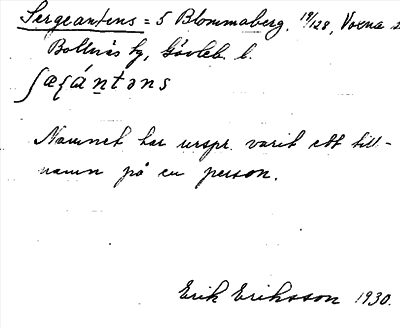 Sergeantens = 5 Blommaberg. 19/128, Voxna s
Bollnäs tg, Gävleb. l.
Namnet har urspr. varit ett till-
namn på en person.
Erik Eriksson 1930.